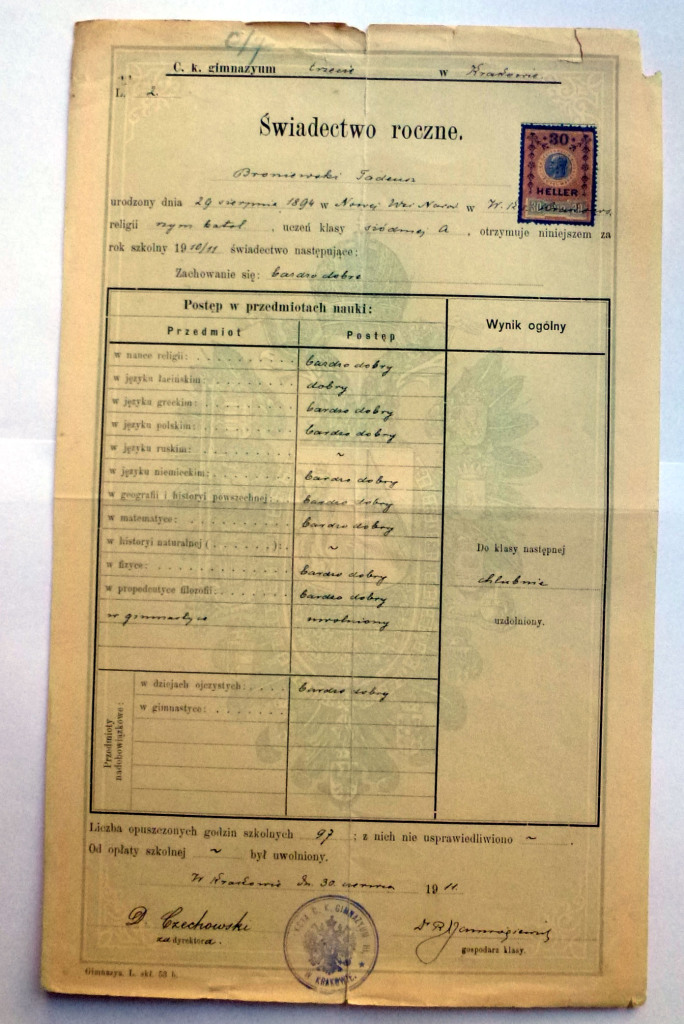 C. k. gimnazyum trzecie w Krakowie
L. 2.
Świadectwo roczne.
30
HELLER
Broniewski Tadeusz
urodzony dnia 29 sierpnia 1894 w Nowej Wsi Narod. w W. Ks.
religii rzym. katol. , uczeń klasy siódmej A , otrzymuje niniejszem za
rok szkolny 1910/11 świadectwo następujące:
Zachowanie się: bardzo dobre
Postęp w przedmiotach nauki:
Wynik ogólny
Przedmiot Postęp
w nauce religii: bardzo dobry
w języku łacińskim: dobry
w języku greckim: bardzo dobry
w języku polskim: bardzo dobry
w języku ruskim: ~
w języku niemieckim: bardzo dobry
w geografii i historyi powszechnej: bardzo dobry
w matematyce: bardzo dobry
w historyi naturalnej ( . . . . . . ): ~
Do klasy następnej
w fizyce: bardzo dobry
chlubnie
w propedeutyce filozofii: bardzo dobry
w gimnastyce uwolniony
uzdolniony.
Przedmioty nadobowiązkowe:
w dziejach ojczystych: bardzo dobry
w gimnastyce:
Liczba opuszczonych godzin szkolnych 97 ; z nich nie usprawiedliwiono ~ .
Od opłaty szkolnej ~ był uwolniony.
W Krakowie dn. 30 czerwca 1911.
D. Czechowski
za dyrektora.
gospodarz klasy.
C. K. GIMNAZYUM III. W KRAKOWIE.
Gimnazya. L. skł. 53 b.